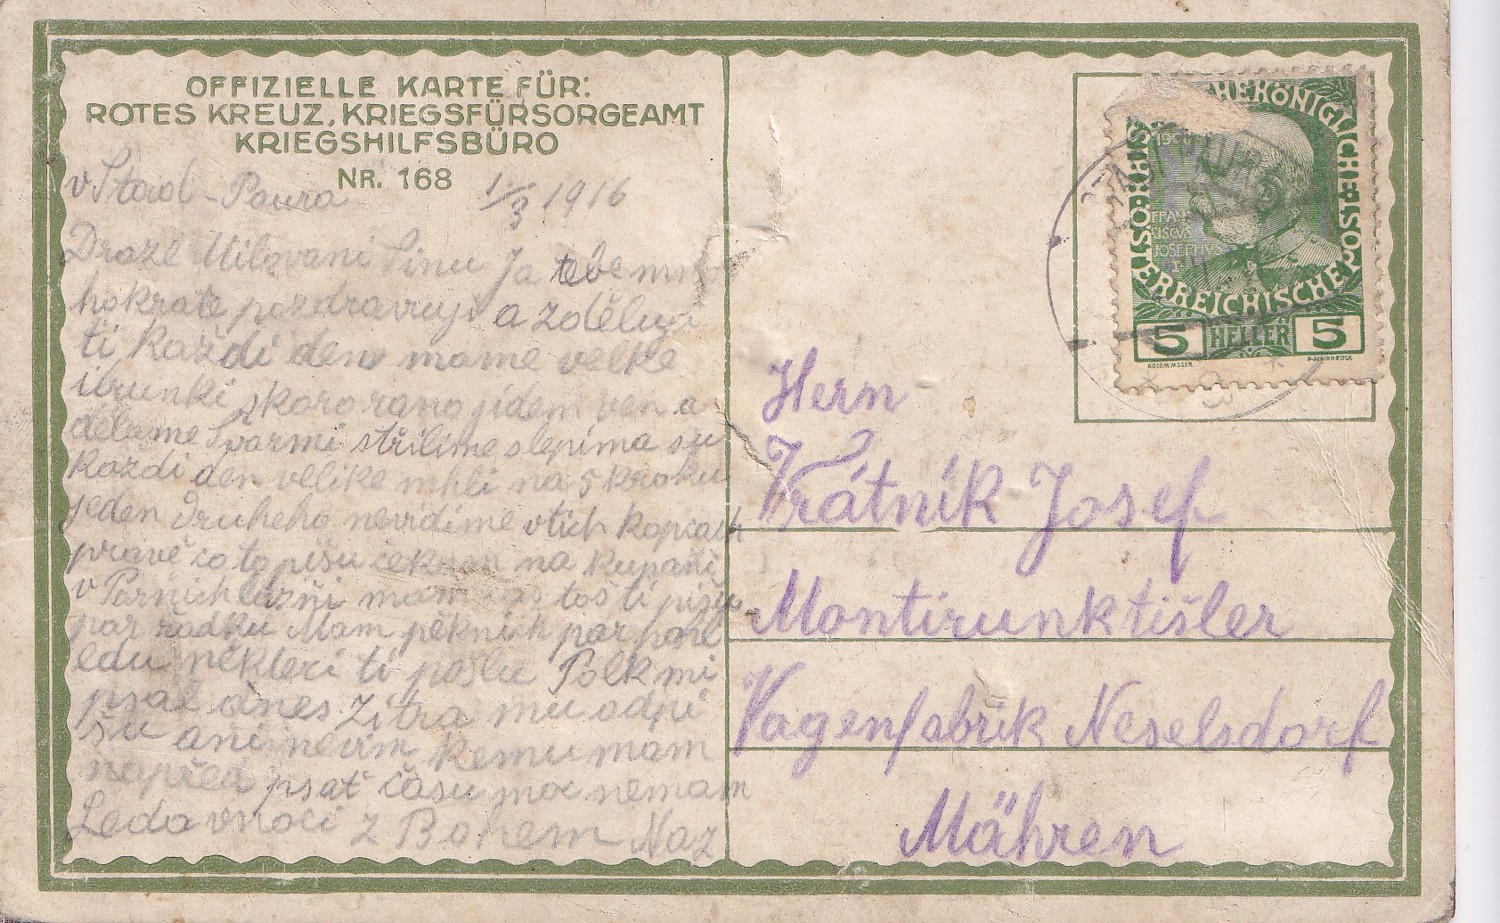 OFFIZIELLE KARTE FÜR:
ROTES KREUZ, KRIEGSFÜRSORGEAMT
KRIEGSHILFSBÜRO
NR. 168
v Stadl-Paura 1/3 1916
Draze Milovani Sinu Ja tebe mno
hokrate pozdravuji a zděluji
ti každi den mame velke
ibunki skoro rano jidem ven a
děleme Švarmi střilime slepima su
každi den velike mhli na 5 kroku
jeden druheho nevidime vtich kopcach
pravě co to pišu čekam na kupani
v Parnich lazni mam čas toš ti pišu
par řadku Mam pěknich par pohl
edu některi ti pošlu Polk mi
psal dnes Zitra mu odpi
šu ani nevim kemu mam
napřed psat času moc nemam
Leda vnoci z Bohem Naz
KAISERLICHE KÖNIGLICHE
ÖSTERREICHISCHE
FRAN
CISCVS
JOSEPHVS
5 HELLER 5
KOLOM.MOSER.
Herrn
Vrátník Josef
Montirunktišler
Vagenfabrik Neselsdorf
Mähren